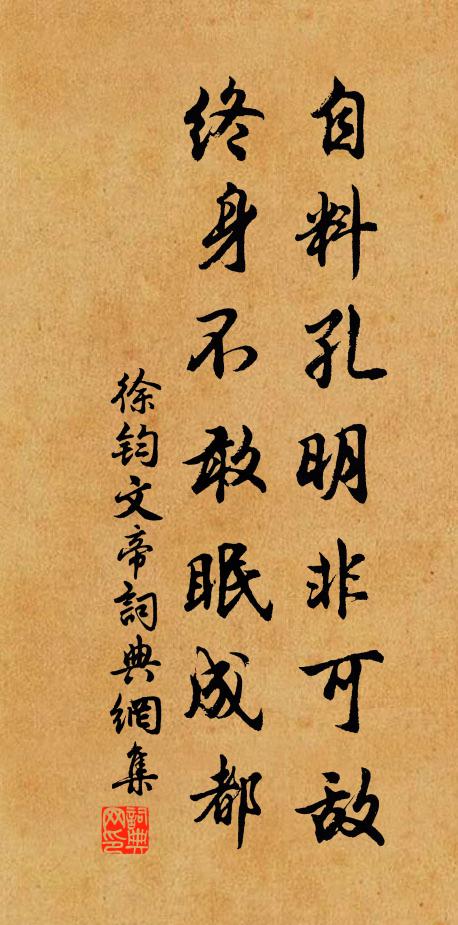 自料孔明非可敌
终身不敢眠成都
徐钧文帝詞典網集
詞典网印